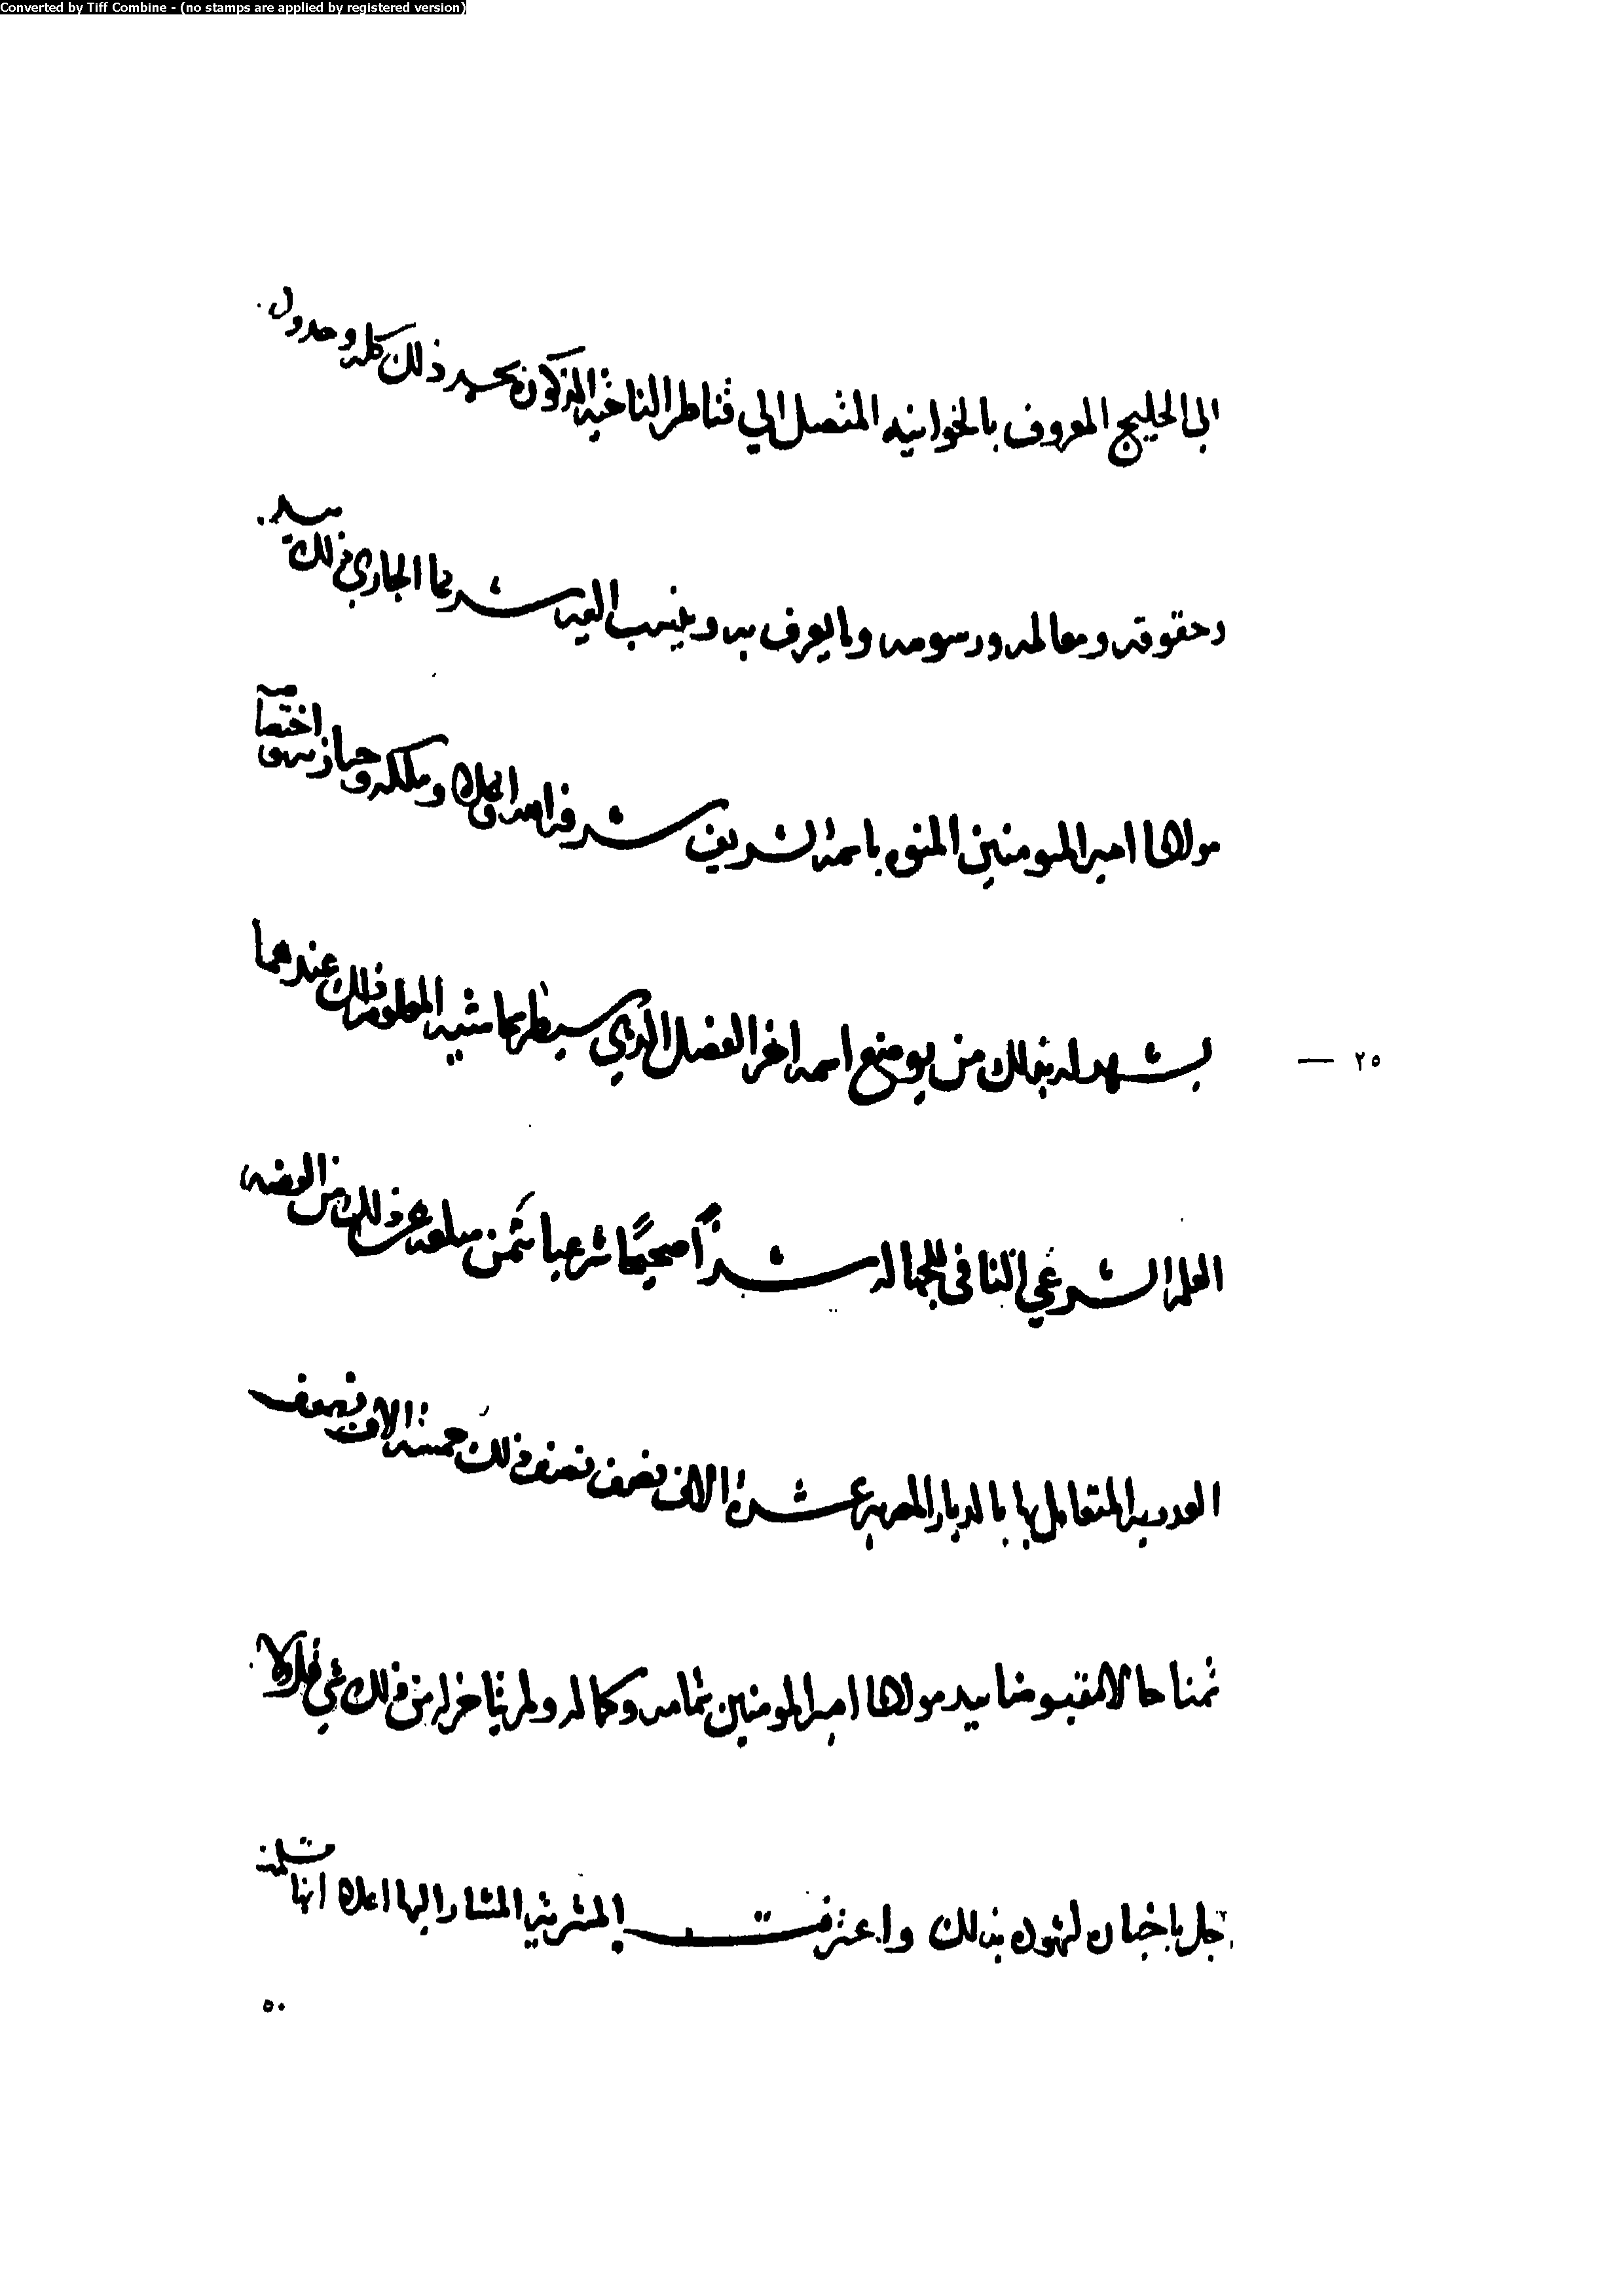 Converted by Tiff Combine - (no stamps are applied by registered version)
الى الخليج المعروف بالخوانيه المتصل الي قناطر الناحيه المذكوره بحميع ذلك كله وحدوده
وحقوقه ومعالمه ورسومه وما يعرف به وينسب اليه شرعا الجاري ذلك بيد
مولانا امير المومنين المنوه باسمه الشريف شرفه الله اعلاه وملكه وحيازته
يشهد له بذلك من يوضع اسمه اخر الفصل الذي سيطر بهامشيه المعلوم ذلك عندهما
٢٥ —
العلم الشرعي النافي للجهاله شرآ صحيحًا شرعيا بثمن مبلغه عن ذلك من الفضه
العدديه المتعامل بها بالديار المصريه عشرة الاف نصف نصف ذلك خمسة الاف نصف
ثمنا حالا مقبوضا بيد مولانا امير المومنين بتمامه وكماله ولم يتاخر له من ذلك شي قل ولا
جل باخباره لشهوده بذلك واعترفت المشتريه المشار اليها اعلاه انها
٥٠